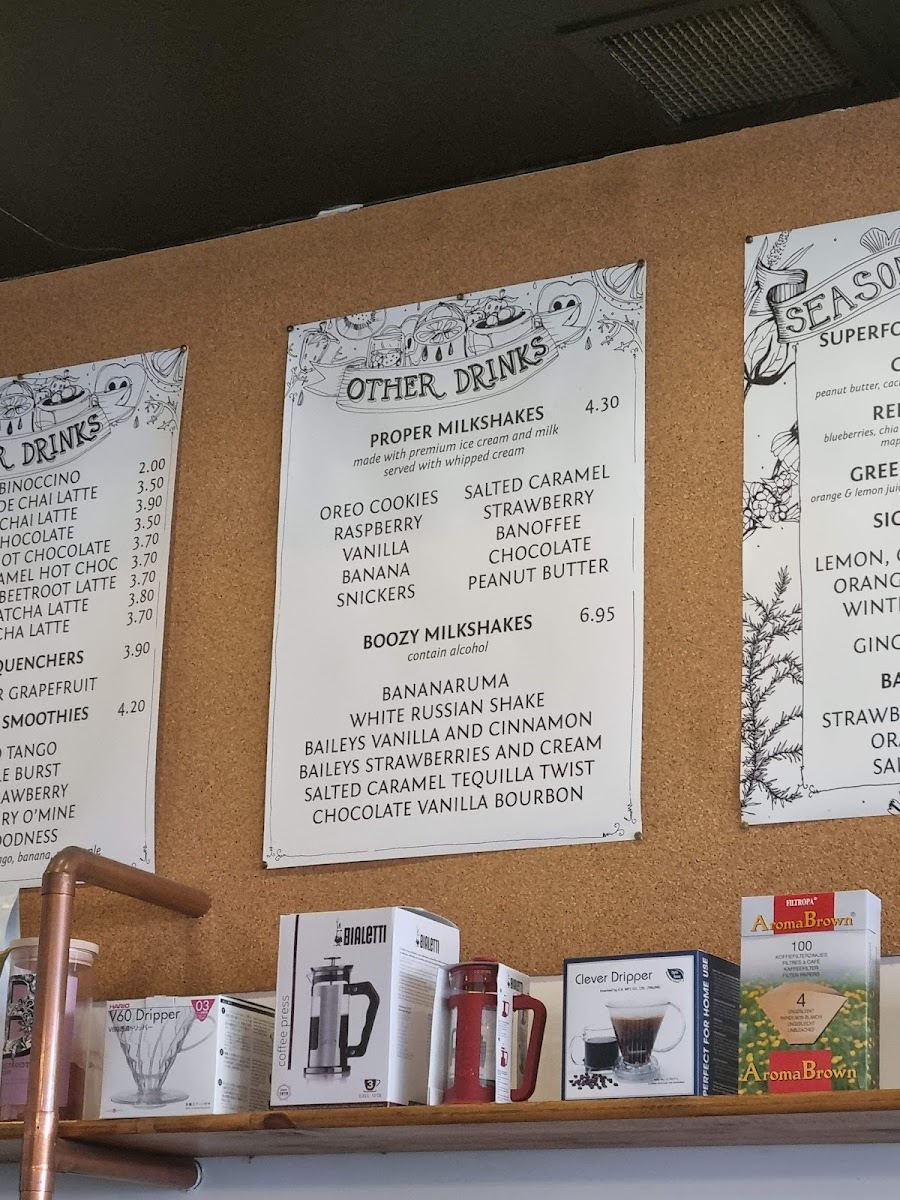 DRINKS
2.00
CHAI LATTE 3.50
CHAI LATTE 3.90
3.50
HOT CHOCOLATE 3.70
HOT CHOC 3.70
BEETROOT LATTE 3.70
LATTE 3.80
LATTE 3.70
QUENCHERS 3.90
GRAPEFRUIT
SMOOTHIES 4.20
TANGO
BURST
O'MINE
banana,
OTHER DRINKS
PROPER MILKSHAKES 4.30
made with premium ice cream and milk
served with whipped cream
OREO COOKIES
RASPBERRY
VANILLA
BANANA
SNICKERS
SALTED CARAMEL
STRAWBERRY
BANOFFEE
CHOCOLATE
PEANUT BUTTER
BOOZY MILKSHAKES 6.95
contain alcohol
BANANARUMA
WHITE RUSSIAN SHAKE
BAILEYS VANILLA AND CINNAMON
BAILEYS STRAWBERRIES AND CREAM
SALTED CARAMEL TEQUILLA TWIST
CHOCOLATE VANILLA BOURBON
peanut butter,
blueberries, chia
orange & lemon
LEMON,
HARIO
V60 Dripper 03
BIALETTI
coffee press
3
BIALETTI
Clever Dripper
PERFECT FOR HOME USE
FILTROPA
AromaBrown
100
KOFFIEFILTERZAKJES
FILTRES À CAFÉ
KAFFEEFILTER
FILTER PAPERS
4
UNGEBLEICHT
UNBLEACHED
AromaBrown